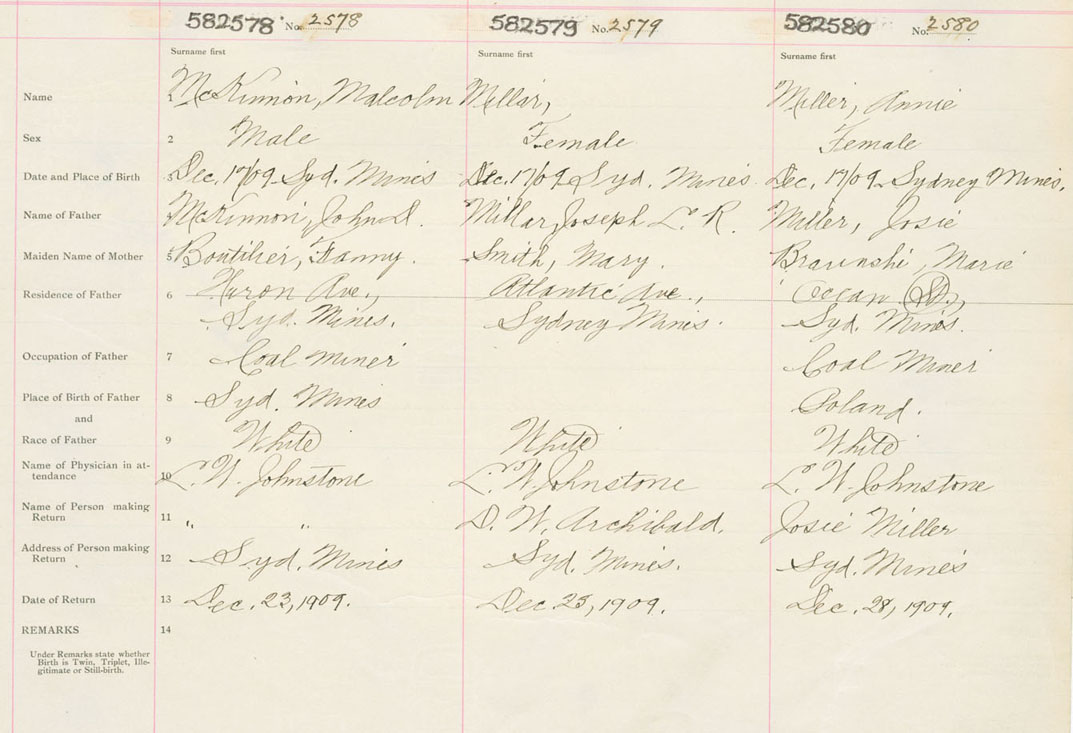 582578 No. 2578 582579 No. 2579 582580 No. 2580
Surname first Surname first Surname first
Name 1 McKinnon, Malcolm Millar, Miller, Annie
Sex 2 Male Female Female
Date and Place of Birth 3 Dec. 17/09 Syd. Mines Dec. 17/09 Syd. Mines Dec. 17/09 Sydney Mines.
Name of Father 4 McKinnon, John D. Millar, Joseph L. R. Miller, Josie
Maiden Name of Mother 5 Boutilier, Fanny. Smith, Mary. Marie
Residence of Father 6 Huron Ave., Atlantic Ave., Ocean St.,
Syd. Mines. Sydney Mines. Syd. Mines.
Occupation of Father 7 Coal Miner Coal Miner
Place of Birth of Father 8 Syd. Mines Poland.
and
Race of Father 9 White White White
Name of Physician in at-
tendance 10 L. W. Johnstone L. W. Johnstone L. W. Johnstone
Name of Person making
Return 11 " " D. W. Archibald. Josie Miller
Address of Person making
Return 12 Syd. Mines Syd. Mines. Syd. Mines
Date of Return 13 Dec. 23, 1909. Dec. 23, 1909. Dec. 28, 1909.
REMARKS 14
Under Remarks state whether
Birth is Twin, Triplet, Ille-
gitimate or Still-birth.